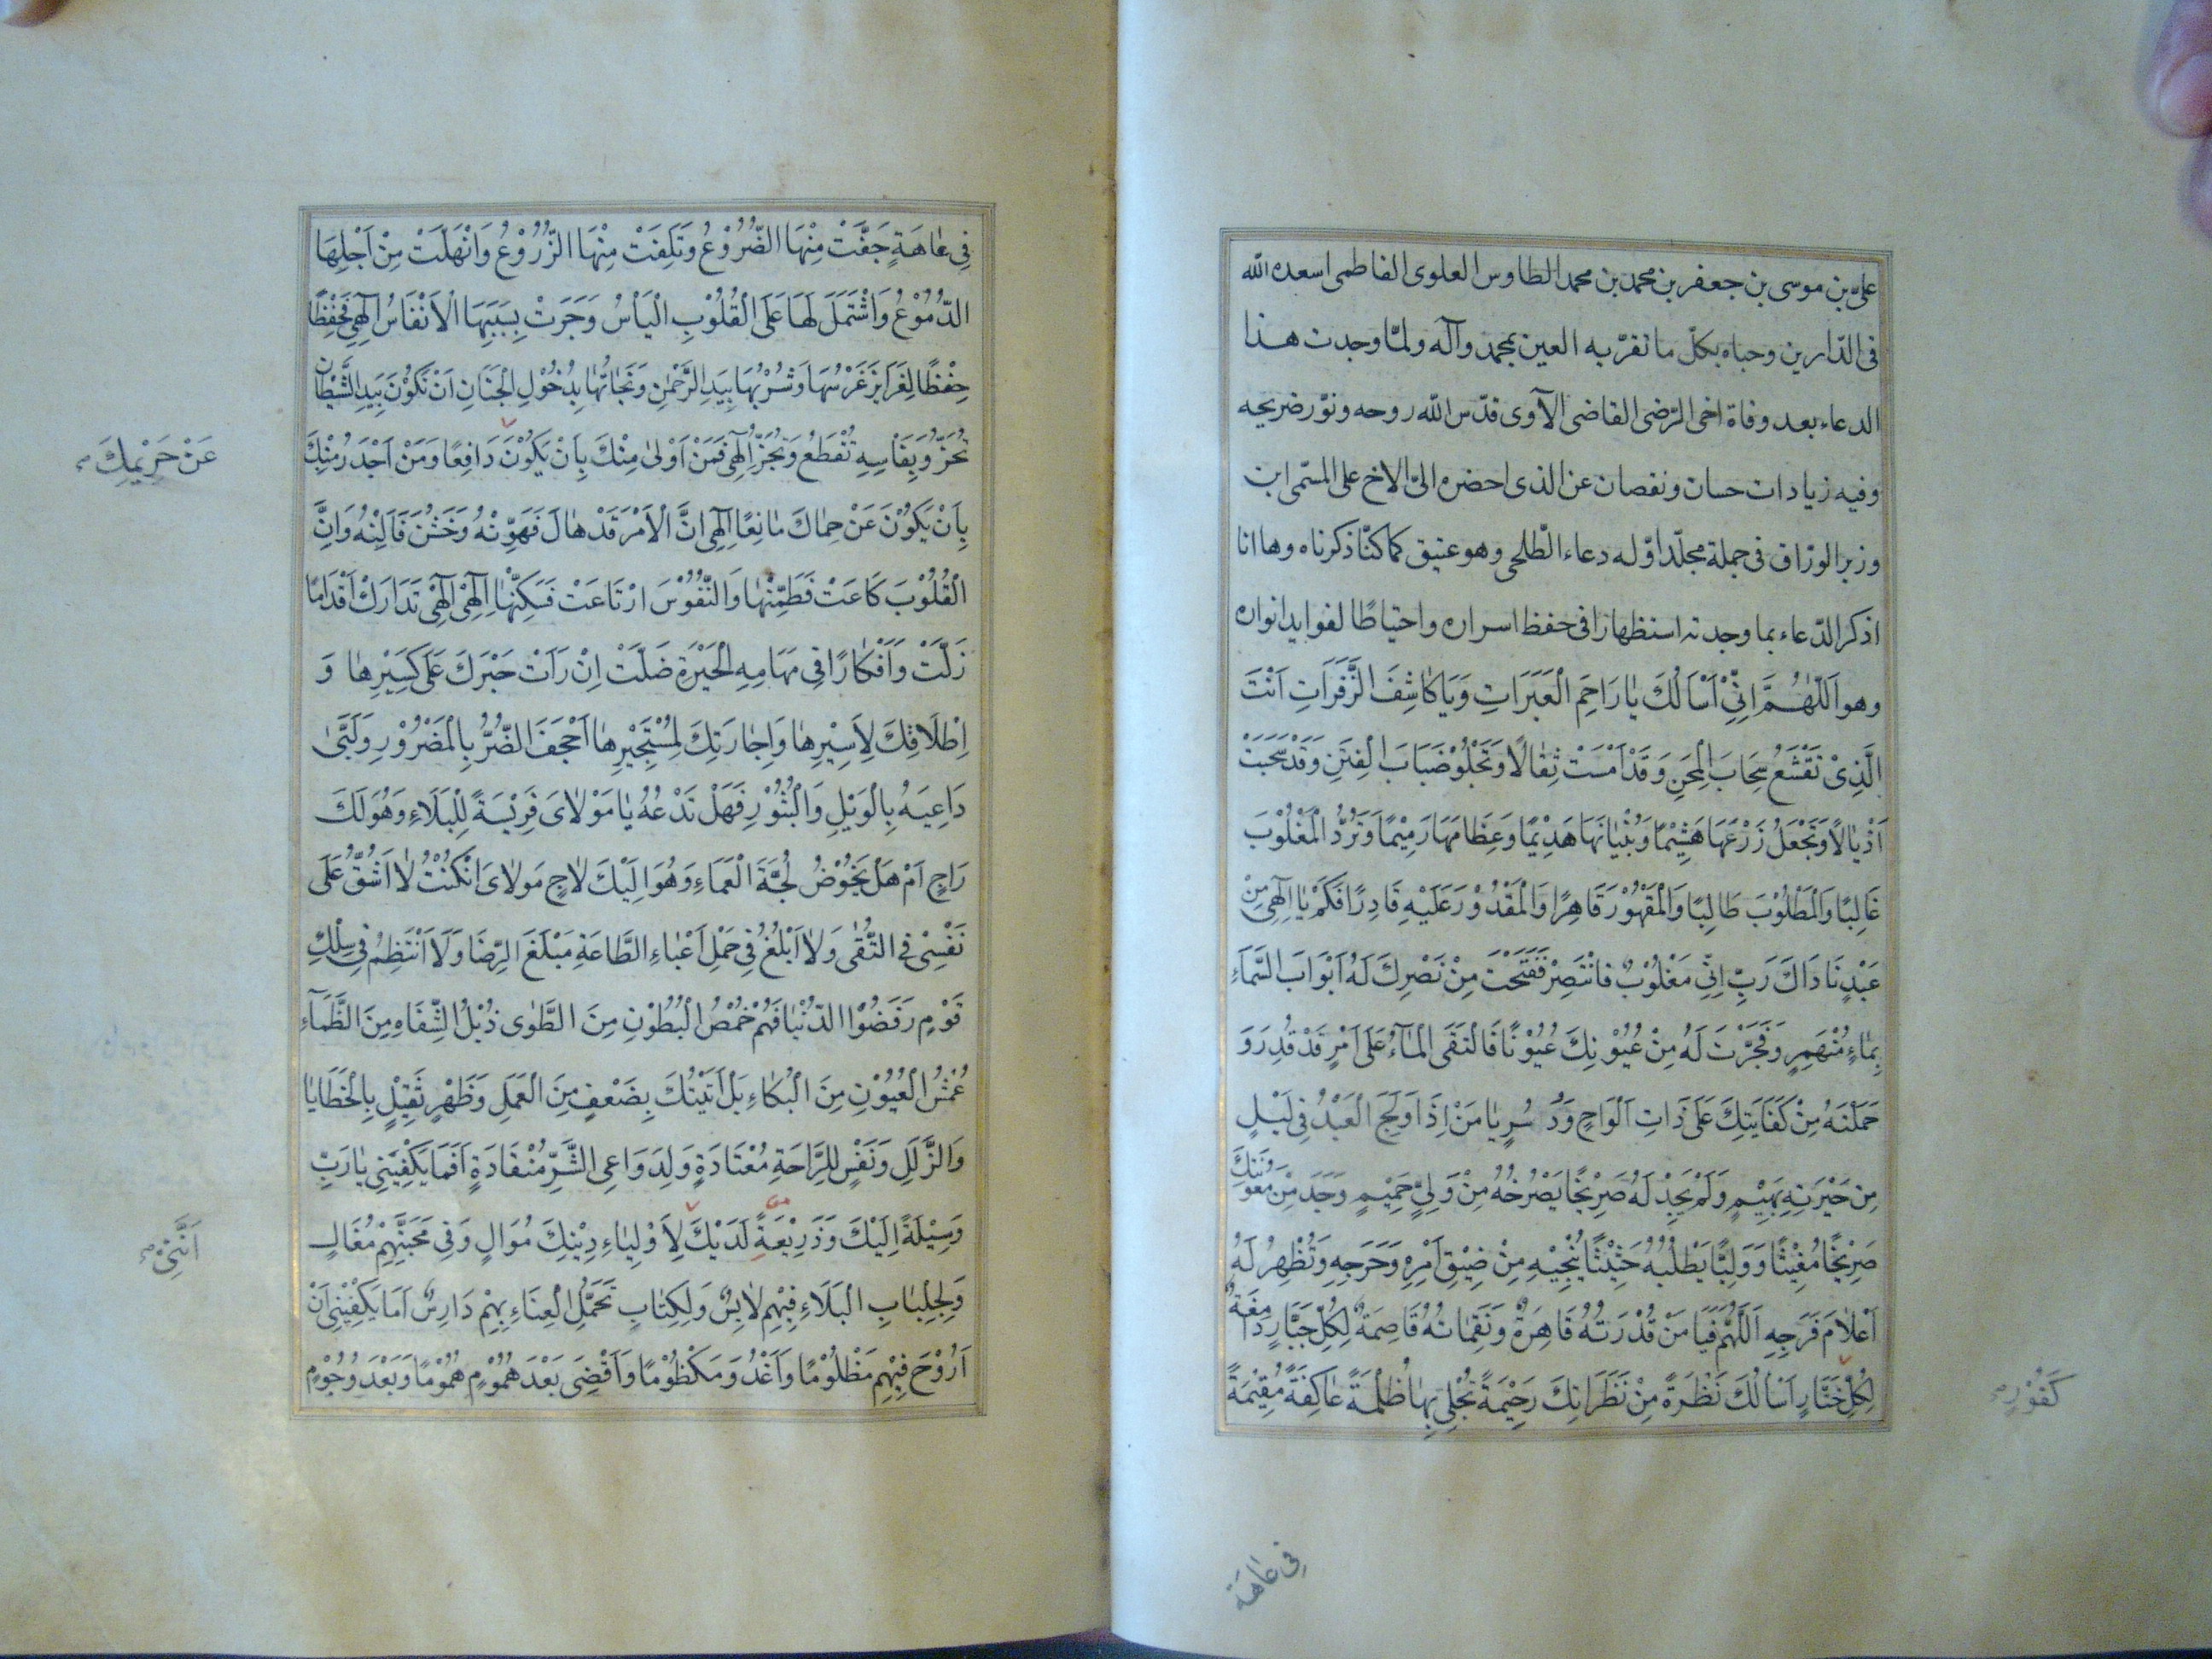 علىّ بن موسى بن جعفر بن محمد بن محمد الطاوس العلوى الفاطمى اسعده الله
فى الدّارين وحباه بكلّ ما تقرّ به العين بمحمد وآله ولمّا وجدت هذا
الدعاء بعد وفاة اخى الرّضى القاضى الآوى قدّس الله روحه ونوّر ضريحه
وفيه زيادات حسان ونقصان عن الذى احضره الىّ الاخ على المسمّى ابن
وزير الورّاق فى جملة مجلّد اوّله دعاء الطّلحى وهو عتيق كما كنّا ذكرناه وها انا
اذكر الدّعاء بما وجدته استظهارًا فى حفظ اسراره واحتياطًا لفوايد انواره
وهو اَللّٰهُمَّ اِنِّىْ اَسْاَلُكَ يٰا رَاحِمَ الْعَبَرَاتِ وَيَا كٰاشِفَ الزَّفَرَاتِ اَنْتَ
الَّذِىْ تَقْشَعُ سِحَابَ الْمِحَنِ وَقَدْ اَمْسَتْ ثِقٰالًا وَتَجْلُوْ ضَبَابَ الْفِتَنِ وَقَدْ سَحَبَتْ
اَذْيٰالًا وَتَجْعَلُ زَرْعَهَا هَشِيْمًا وَبُنْيٰانَهَا هَدِيْمًا وَعِظَامَهَا رَمِيْمًا وَتَرُدُّ الْمَغْلُوْبَ
غَالِبًا وَالْمَطْلُوْبَ طَالِبًا وَالْمَقْهُوْرَ قَاهِرًا وَالْمَقْدُوْرَ عَلَيْهِ قَادِرًا فَكَمْ يٰا اِلٰهِى مِنْ
عَبْدٍ نَادَاكَ رَبِّ اِنِّى مَغْلُوْبٌ فَانْتَصِرْ فَفَتَحْتَ مِنْ نَصْرِكَ لَهُ اَبْوَابَ السَّمَاءِ
بِمٰاءٍ مُنْهَمِرٍ وَفَجَّرْتَ لَهُ مِنْ عُيُوْنِكَ عُيُوْنًا فَالْتَقَى الْمٰاءُ عَلَى اَمْرٍ قَدْ قُدِرَ وَ
حَمَلْتَهُ مِنْ كِفَايَتِكَ عَلَى ذَاتِ اَلْوَاحٍ وَدُسُرٍ يٰا مَنْ اِذَا وَلَجَ الْعَبْدُ فِى لَيْلٍ
مِن حَيْرَتِهِ بَهِيْمٍ وَلَمْ يَجِدْ لَهُ صَرِيْخًا يَصْرُخُهُ مِنْ وَلِىٍّ حَمِيْمٍ وَجَدَ مِنْ مَعُوْنَتِكَ
صَرِيْخًا مُغِيْثًا وَوَلِيًّا يَطْلُبُهُ حَثِيْثًا يُنْجِيْهِ مِنْ ضِيْقِ اَمْرِهِ وَحَرَجِهِ وَتُظْهِرُ لَهُ
اَعْلَامَ فَرَجِهِ اَللّٰهُمَّ فَيَا مَنْ قُدْرَتُهُ قَاهِرَةٌ وَنَقِمٰاتُهُ قَاصِمَةٌ لِكُلِّ جَبَّارٍ دَامِغَةٌ
لِكُلِّ خَتَّارٍ اَسْاَلُكَ نَظْرَةً مِنْ نَظَرَاتِكَ رَحِيْمَةً تُجْلِى بِهٰا ظُلْمَةً عٰاكِفَةً مُقِيْمَةً
كَفُوْرٍ
فِى عٰاهَة
فِى عٰاهَةٍ جَفَّتْ مِنْهَا الضُّرُوْعُ وَتَلِفَتْ مِنْهَا الزُّرُوْعُ وَانْهَلَّتْ مِنْ اَجْلِهَا
الدُّمُوْعُ وَاشْتَمَلَ لَهَا عَلَى الْقُلُوْبِ الْيَأْسُ وَجَرَتْ بِسَبَبِهَا الْاَنْفَاسُ اِلٰهِى فَحِفْظًا
حِفْظًا لِغَرَايِزَ غَرْسُهَا وَشُرْبُهَا بِيَدِ الرَّحْمٰنِ وَنَجَاتُهَا بِدُخُوْلِ الْجَنَانِ اَنْ تَكُوْنَ بِيَدِ الشَّيْطَانِ
تُحَزُّ وَبِفَأْسِهِ تُقْطَعُ وَتُجَزُّ اِلٰهِى فَمَنْ اَوْلىٰ مِنْكَ بِاَنْ يَكُوْنَ دَافِعًا وَمَنْ اَجْدَرُ مِنْكَ
عَنْ حَرِيْمِكَ
بِاَنْ يَكُوْنَ عَنْ حِمٰاكَ مٰانِعًا اِلٰهِى اِنَّ الْاَمْرَ قَدْ هٰالَ فَهَوِّنْهُ وَخَشُنَ فَاَلِنْهُ وَاِنَّ
الْقُلُوْبَ كَاعَتْ فَطَمِّنْهٰا وَالنُّفُوْسَ ارْتَاعَتْ فَسَكِّنْهٰا اِلٰهِىْ اِلٰهِىْ تَدَارَكْ اَقْدَامًا
زَلَّتْ وَاَفْكٰارًا فِى مَهَامِهِ الْحَيْرَةِ ضَلَّتْ اِنْ رَاَتْ جَبْرَكَ عَلَى كَسِيْرِهٰا وَ
اِطْلَاقِكَ لِاَسِيْرِهٰا وَاِجٰارَتِكَ لِمُسْتَجِيْرِهٰا اَجْحَفَ الضُّرُّ بِالْمَضْرُوْرِ وَلَبَّىٰ
دَاعِيَهُ بِالْوَيْلِ وَالثُّبُوْرِ فَهَلْ تَدْعُهُ يٰا مَوْلٰاىَ فَرِيْسَةً لِلْبَلَاءِ وَهُوَ لَكَ
رَاجٍ اَمْ هَلْ يَخُوْضُ لُجَّةَ الْغَمَاءِ وَهُوَ اِلَيْكَ لٰاجٍ مَولٰاىَ اِنْ كُنْتُ لٰا اَشُقُّ عَلَى
نَفْسِىْ فِى التُّقٰى وَلٰا اَبْلُغُ فِى حَمْلِ اَعْبٰاءِ الطَّاعَةِ مَبْلَغَ الرِّضَا وَلَا اَنْتَظِمُ فِى سِلْكِ
قَوْمٍ رَفَضُوْا الدُّنْيٰا فَهُمْ خُمْصُ الْبُطُوْنِ مِنَ الطَّوٰى ذُبْلُ الشِّفَاهِ مِنَ الظَّمَآءِ
عُمْشُ الْعُيُوْنِ مِنَ الْبُكٰاءِ بَلْ اَتَيْتُكَ بِضَعْفٍ مِنَ الْعَمَلِ وَظَهْرٍ ثَقِيْلٍ بِالْخَطَايٰا
وَالزَّلَلِ وَنَفْسٍ لِلرَّاحَةِ مُعْتَادَةٍ وَلِدَوَاعِى الشَّرِّ مُنْقَادَةٍ اَفَمَا يَكْفِيْنِى يٰا رَبِّ
وَسِيْلَةً اِلَيْكَ وَذَرِيْعَةً لَدَيْكَ لِاَوْلِيٰاءِ دِيْنِكَ مُوَالٍ وَفِى مَحَبَّتِهِمْ مُغَالٍ
اَنَّنِىْ
وَلِجِلْبٰابِ الْبَلَاءِ فِيْهِمْ لٰابِسٌ وَلِكِتٰابِ تَحَمُّلِ الْعِنَاءِ بِهِمْ دَارِسٌ اَمَا يَكْفِيْنِى اَنْ
اَرُوْحَ فِيْهِمْ مَظْلُوْمًا وَاَغْدُوَ مَكْظُوْمًا وَاَقْضِىَ بَعْدَ هُمُوْمٍ هُمُوْمًا وَبَعْدَ وُجُوْمٍ